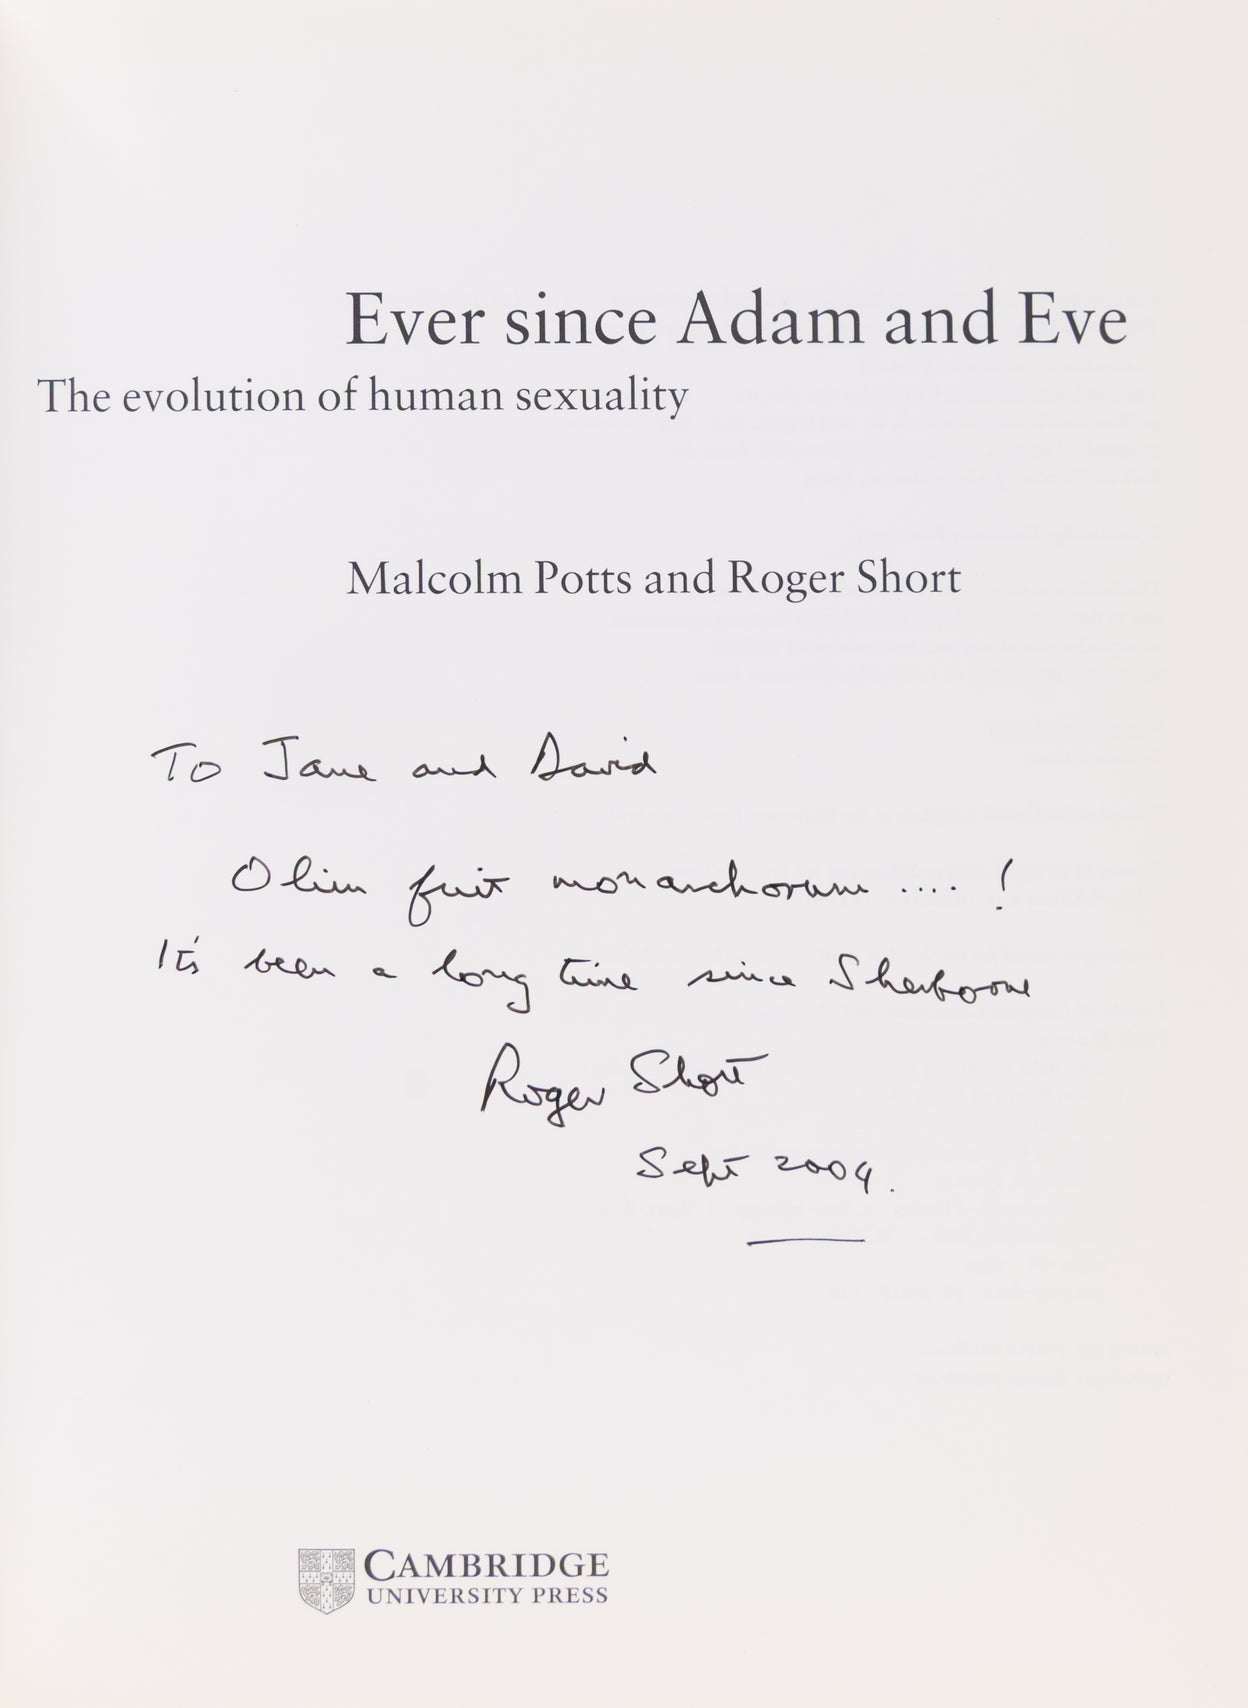 Ever since Adam and Eve
The evolution of human sexuality
Malcolm Potts and Roger Short
To Jane and David
Olim fuit monarchorum .... !
It's been a long time since Sherborne
Roger Short
Sept 2004.
CAMBRIDGE
UNIVERSITY PRESS